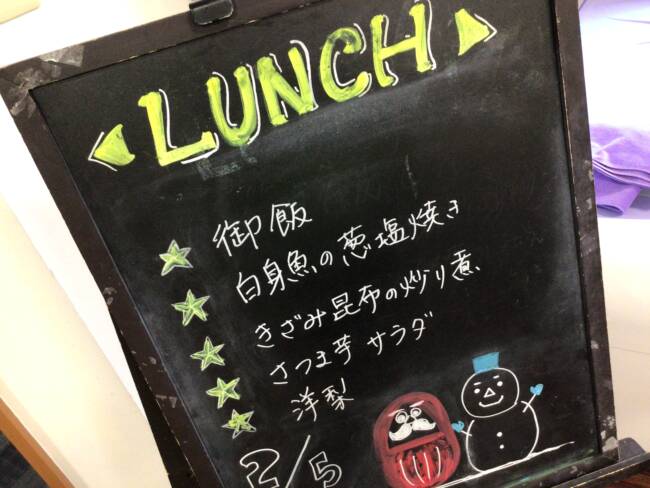 LUNCH
御飯
白身魚の葱塩焼き
きざみ昆布の炒り煮
さつま芋 サラダ
洋梨
2/5